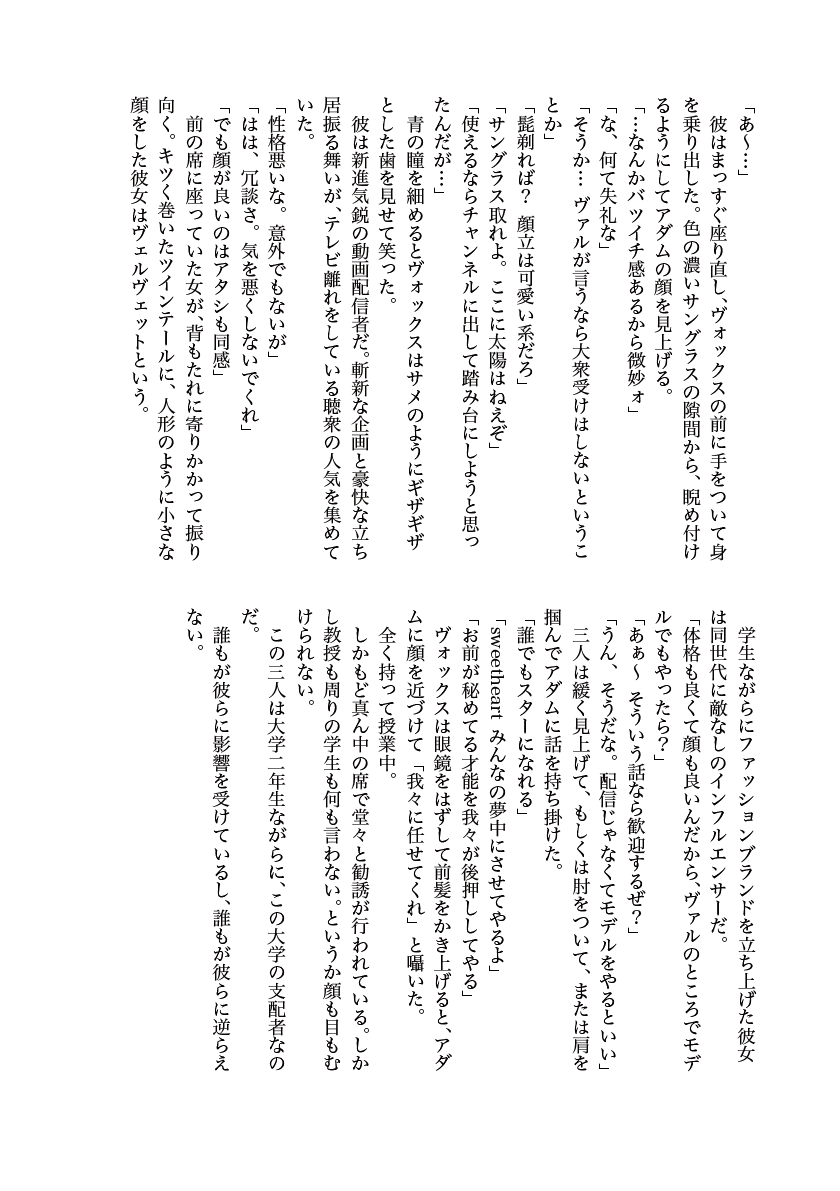 「あ～…」
　彼はまっすぐ座り直し、ヴォックスの前に手をついて身
を乗り出した。色の濃いサングラスの隙間から、睨め付け
るようにしてアダムの顔を見上げる。
「…なんかバツイチ感あるから微妙ォ」
「な、何て失礼な」
「そうか… ヴァルが言うなら大衆受けはしないというこ
とか」
「髭剃れば？　顔立は可愛い系だろ」
「サングラス取れよ。ここに太陽はねえぞ」
「使えるならチャンネルに出して踏み台にしようと思っ
たんだが…」
　青の瞳を細めるとヴォックスはサメのようにギザギザ
とした歯を見せて笑った。
　彼は新進気鋭の動画配信者だ。斬新な企画と豪快な立ち
居振る舞いが、テレビ離れをしている聴衆の人気を集めて
いた。
「性格悪いな。意外でもないが」
「はは、冗談さ。気を悪くしないでくれ」
「でも顔が良いのはアタシも同感」
　前の席に座っていた女が、背もたれに寄りかかって振り
向く。キツく巻いたツインテールに、人形のように小さな
顔をした彼女はヴェルヴェットという。
　学生ながらにファッションブランドを立ち上げた彼女
は同世代に敵なしのインフルエンサーだ。
「体格も良くて顔も良いんだから、ヴァルのところでモデ
ルでもやったら？」
「あぁ～ そういう話なら歓迎するぜ？」
「うん、そうだな。配信じゃなくてモデルをやるといい」
　三人は緩く見上げて、もしくは肘をついて、または肩を
掴んでアダムに話を持ち掛けた。
「誰でもスターになれる」
「sweetheart みんなの夢中にさせてやるよ」
「お前が秘めてる才能を我々が後押ししてやる」
　ヴォックスは眼鏡をはずして前髪をかき上げると、アダ
ムに顔を近づけて「我々に任せてくれ」と囁いた。
　全く持って授業中。
　しかもど真ん中の席で堂々と勧誘が行われている。しか
し教授も周りの学生も何も言わない。というか顔も目もむ
けられない。
　この三人は大学二年生ながらに、この大学の支配者なの
だ。
　誰もが彼らに影響を受けているし、誰もが彼らに逆らえ
ない。